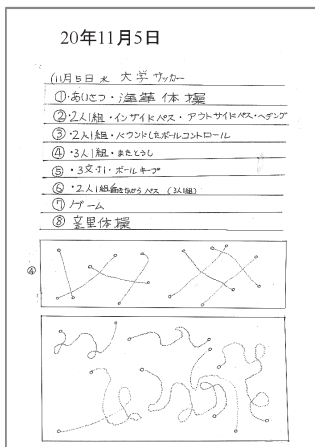 20年11月5日
11月5日 水 大学サッカー
①・あいさつ・準備体操
②・2人1組・インサイドパス・アウトサイドパス・ヘディング
③・2人1組・バウンドしたボールコントロール
④・3人1組・またとうし
⑤・3対1・ボールキープ
⑥・2人1組動きながらパス (3人1組)
⑦ゲーム
⑧整理体操
④